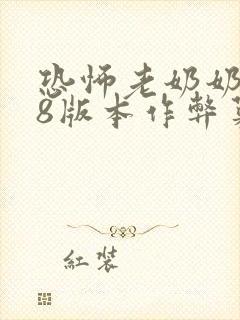 恐怖老奶奶
8版本作弊
紅裝